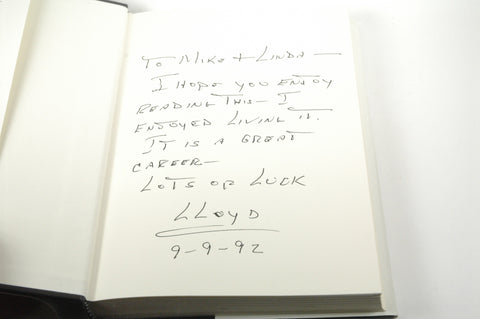 To Mike + Linda —
I hope you enjoy
reading this — I
enjoyed living it.
It is a great
career —
Lots of Luck
Lloyd
9-9-92